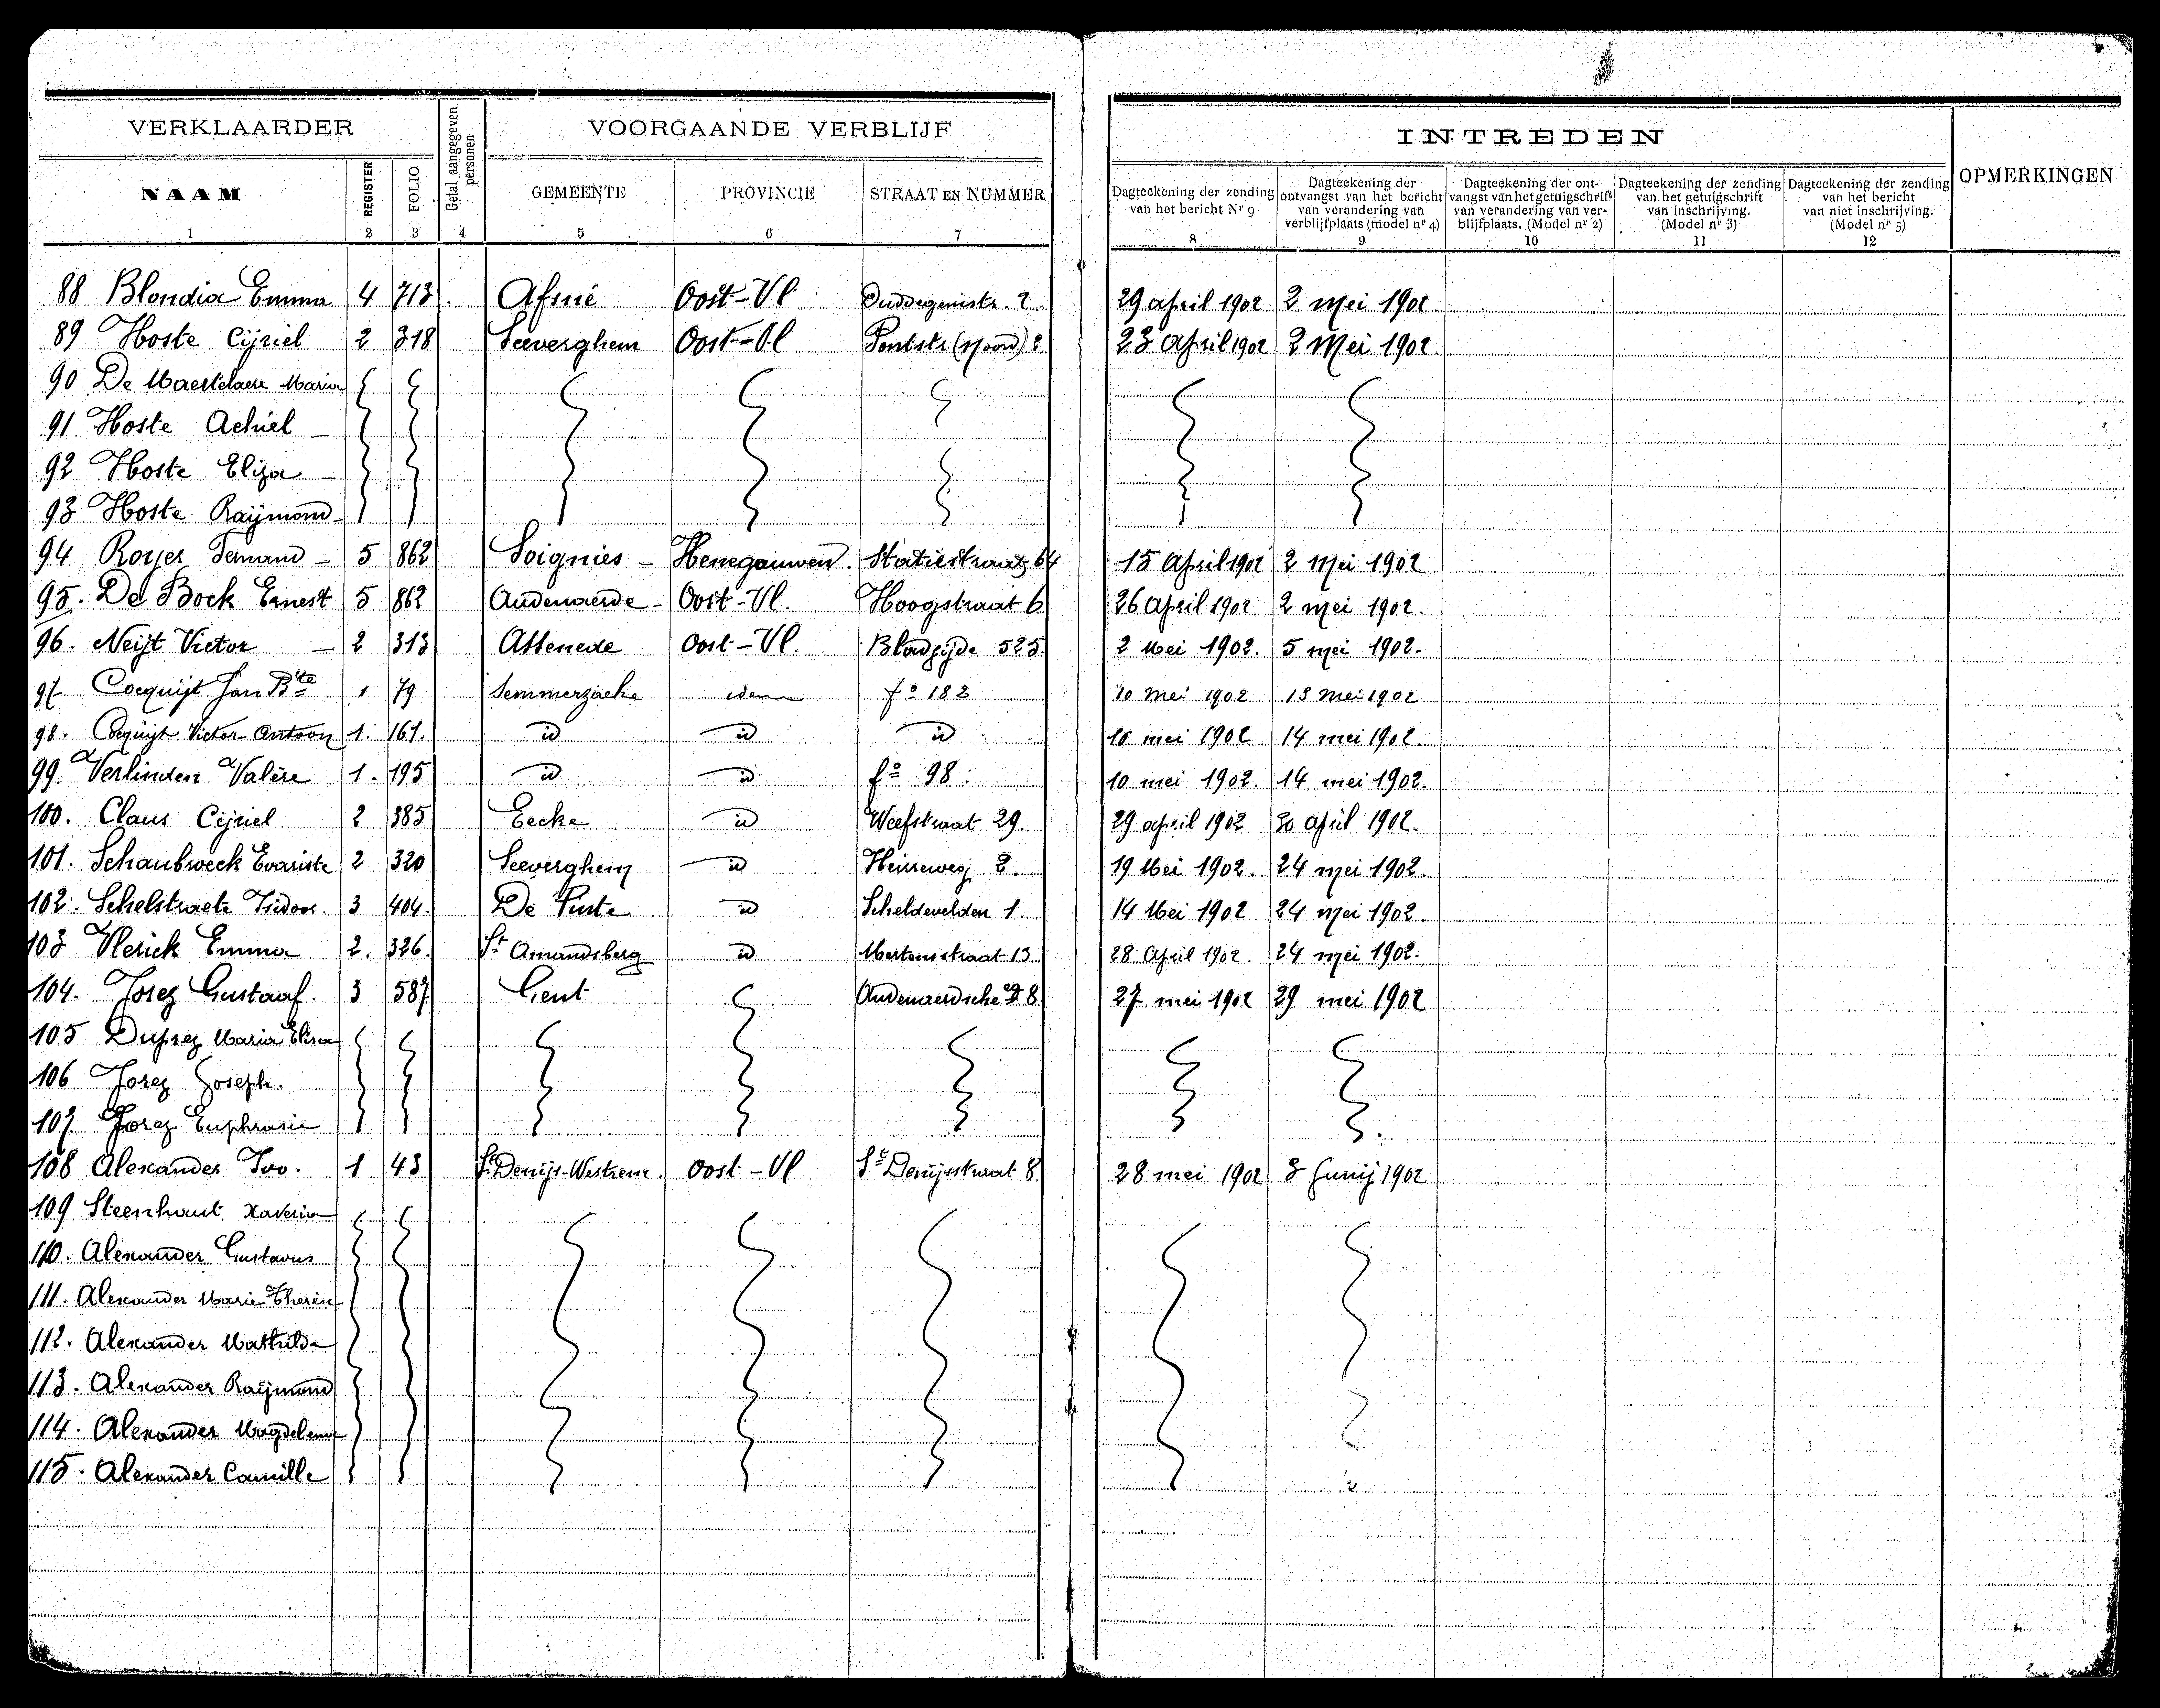 VERKLAARDER
Getal aangegeven personen
VOORGAANDE VERBLIJF
INTREDEN
OPMERKINGEN
NAAM REGISTER FOLIO GEMEENTE PROVINCIE STRAAT EN NUMMER
Dagteekening der zending van het bericht Nr 9
Dagteekening der ontvangst van het bericht van verandering van verblijfplaats (model nr 4)
Dagteekening der ontvangst van het getuigschrift van verandering van verblijfplaats. (Model nr 2)
Dagteekening der zending van het getuigschrift van inschrijving. (Model nr 3)
Dagteekening der zending van het bericht van niet inschrijving. (Model nr 5)
1 2 3 4 5 6 7 8 9 10 11 12
88 Blondia Emma 4 713 Afsné Oost-Vl 2 29 april 1902 2 mei 1902.
89 Hoste Cijriel 2 318 Seeverghem Oost-Vl Pontstr (Noord) 2 23 April 1902 2 Mei 1902.
90 De Maertelaere Maria
91 Hoste Achiel
92 Hoste Eliza
93 Hoste Raijmond
94 Royer Fernand 5 862 Soignies Henegouwen. Statiestraat 64 15 April 1902 2 Mei 1902
95. De Bock Ernest 5 862 Audenaerde Oost-Vl. Hoogstraat 6 26 April 1902. 2 mei 1902.
96. Neijt Victor 2 313 Assenede Oost-Vl. 525 2 Mei 1902. 5 mei 1902.
97 Cocquijt Jan Bte 1 79 Semmerzaeke idem fo 182 10 Mei 1902 13 Mei 1902
98. Cocquijt Victor Antoon 1. 161. id id id 10 mei 1902 14 mei 1902.
99. Verlinden Valère 1. 195 id id fo 98. 10 mei 1902. 14 mei 1902.
100. Claus Cijriel 2 385 Eecke id Weefstraat 29. 29 april 1902 30 april 1902.
101. Schaubroeck Evariste 2 320 Seeverghem id Heirreweg 2. 19 Mei 1902. 24 mei 1902.
102. Schelstraete Isidoor. 3 404. De Pinte id Scheldevelden 1. 14 Mei 1902 24 mei 1902.
103 Vlerick Emma 2. 326. St Amandsberg id Mertensstraat 13 28 April 1902. 24 mei 1902.
104. Jorez Gustaaf. 3 587 Gent Audenaerdsche 8 27 mei 1902 29 mei 1902
105 Duprez Maria Elisa
106 Jorez Joseph.
107 Jorez Euphrasie
108 Alexander Ivo. 1 43 St Denijs-Westrem. Oost-Vl St Denijsstraat 8 28 mei 1902 3 Junij 1902
109 Steenhaut Xaveria
110. Alexander Gustavus
111. Alexander Marie Therèse
112. Alexander Mathilde
113. Alexander Raijmond
114. Alexander Magdelena
115. Alexander Camille